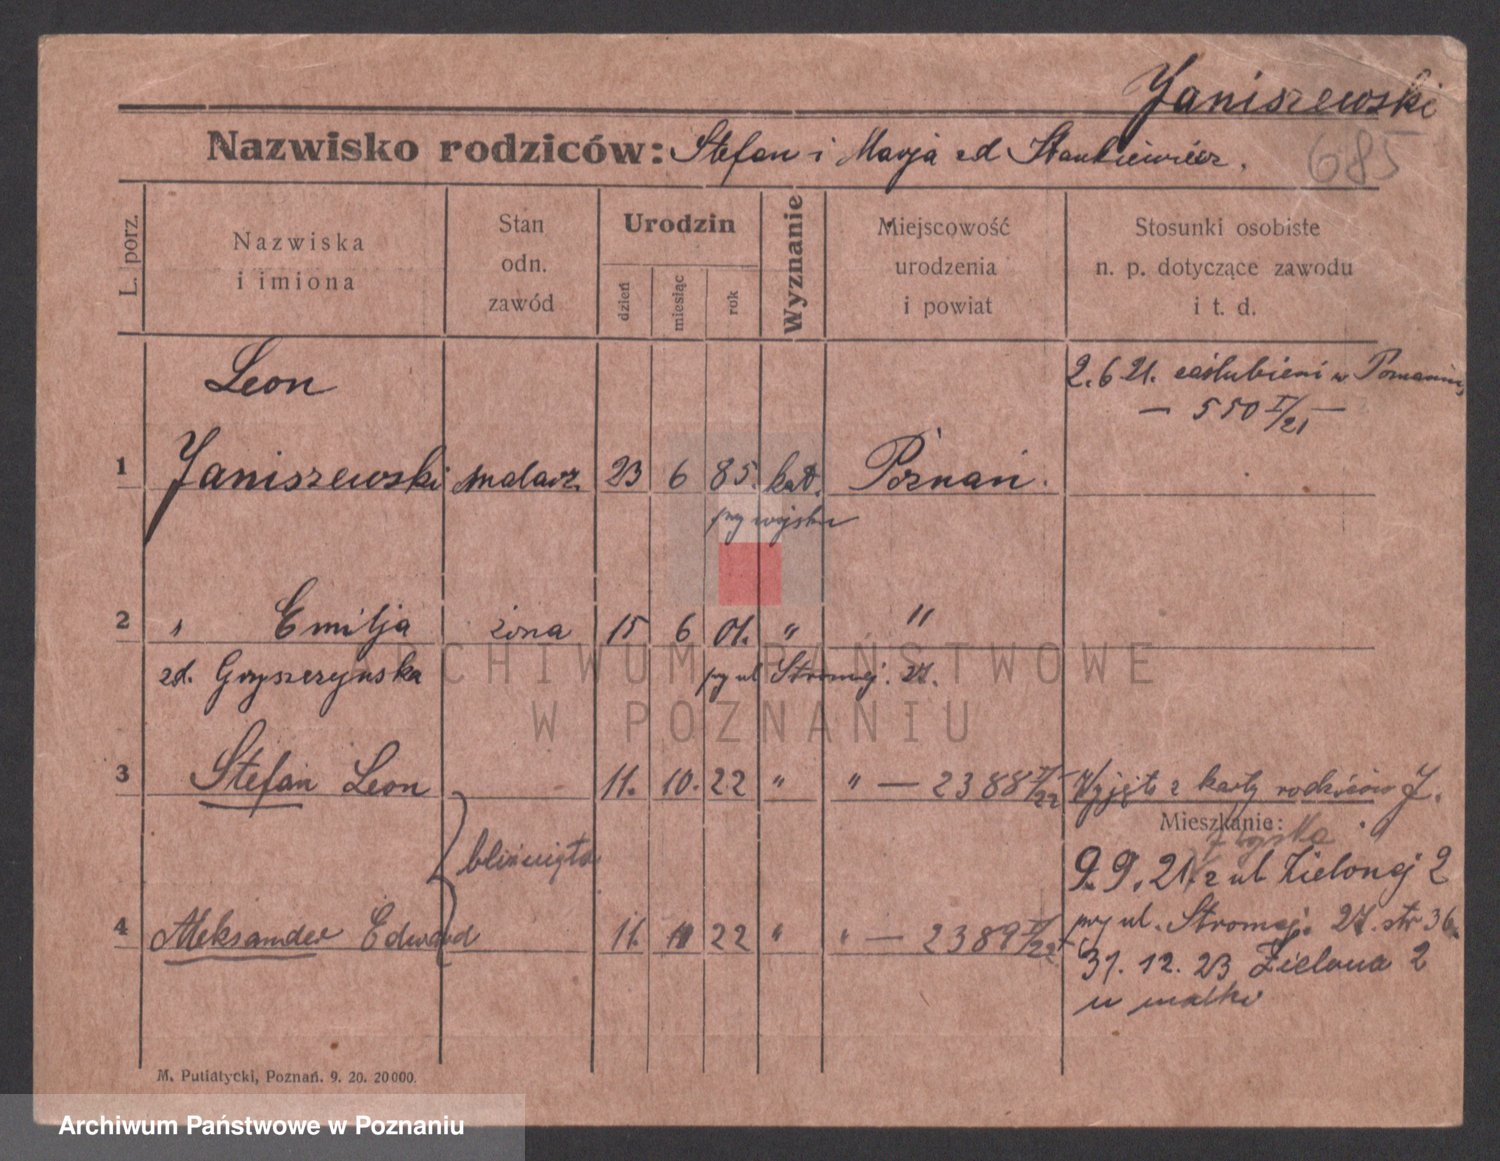 Janiszewski
Nazwisko rodziców: Stefan i Marja zd Stankiewicz.
685
L. porz.
Nazwiska
i imiona
Stan
odn.
zawód
Urodzin
dzień
miesiąc
rok
Wyznanie
Miejscowość
urodzenia
i powiat
Stosunki osobiste
n. p. dotyczące zawodu
i t. d.
Leon
2. 6 21. zaślubieni w Poznaniu,
— 550 I/21 —
1 Janiszewski malarz 23 6 85. kat. Poznań.
przy wojsku
2 " Emilja żona 15 6 01. " "
zd. Gryszczyńska przy ul Stromej. 27.
3 Stefan Leon 11. 10. 22 " " — 2388 II/22 Wyjęto z karty rodziców J.
Mieszkanie:
z wojska
bliźnięta
9. 9. 21. z ul Zielonej 2
4 Aleksander Edward 11. 10 22 " " — 2389 II/22 przy ul. Stromej. 27. str 36.
31. 12. 23 Zielona 2
u matki
M. Putiatycki, Poznań. 9. 20. 20000.
ARCHIWUM PAŃSTWOWE
W POZNANIU
Archiwum Państwowe w Poznaniu